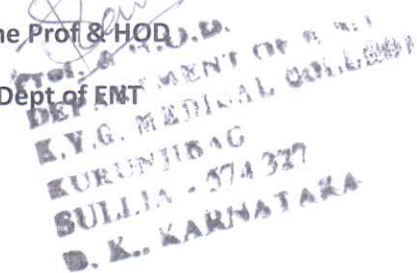 ne Prof & HOD
Dept of ENT
Prof. & H.O.D.
DEPARTMENT OF E.N.T.
K.V.G. MEDICAL COLLEGE
KURUNJIBAG
SULLIA - 574 327
D. K., KARNATAKA